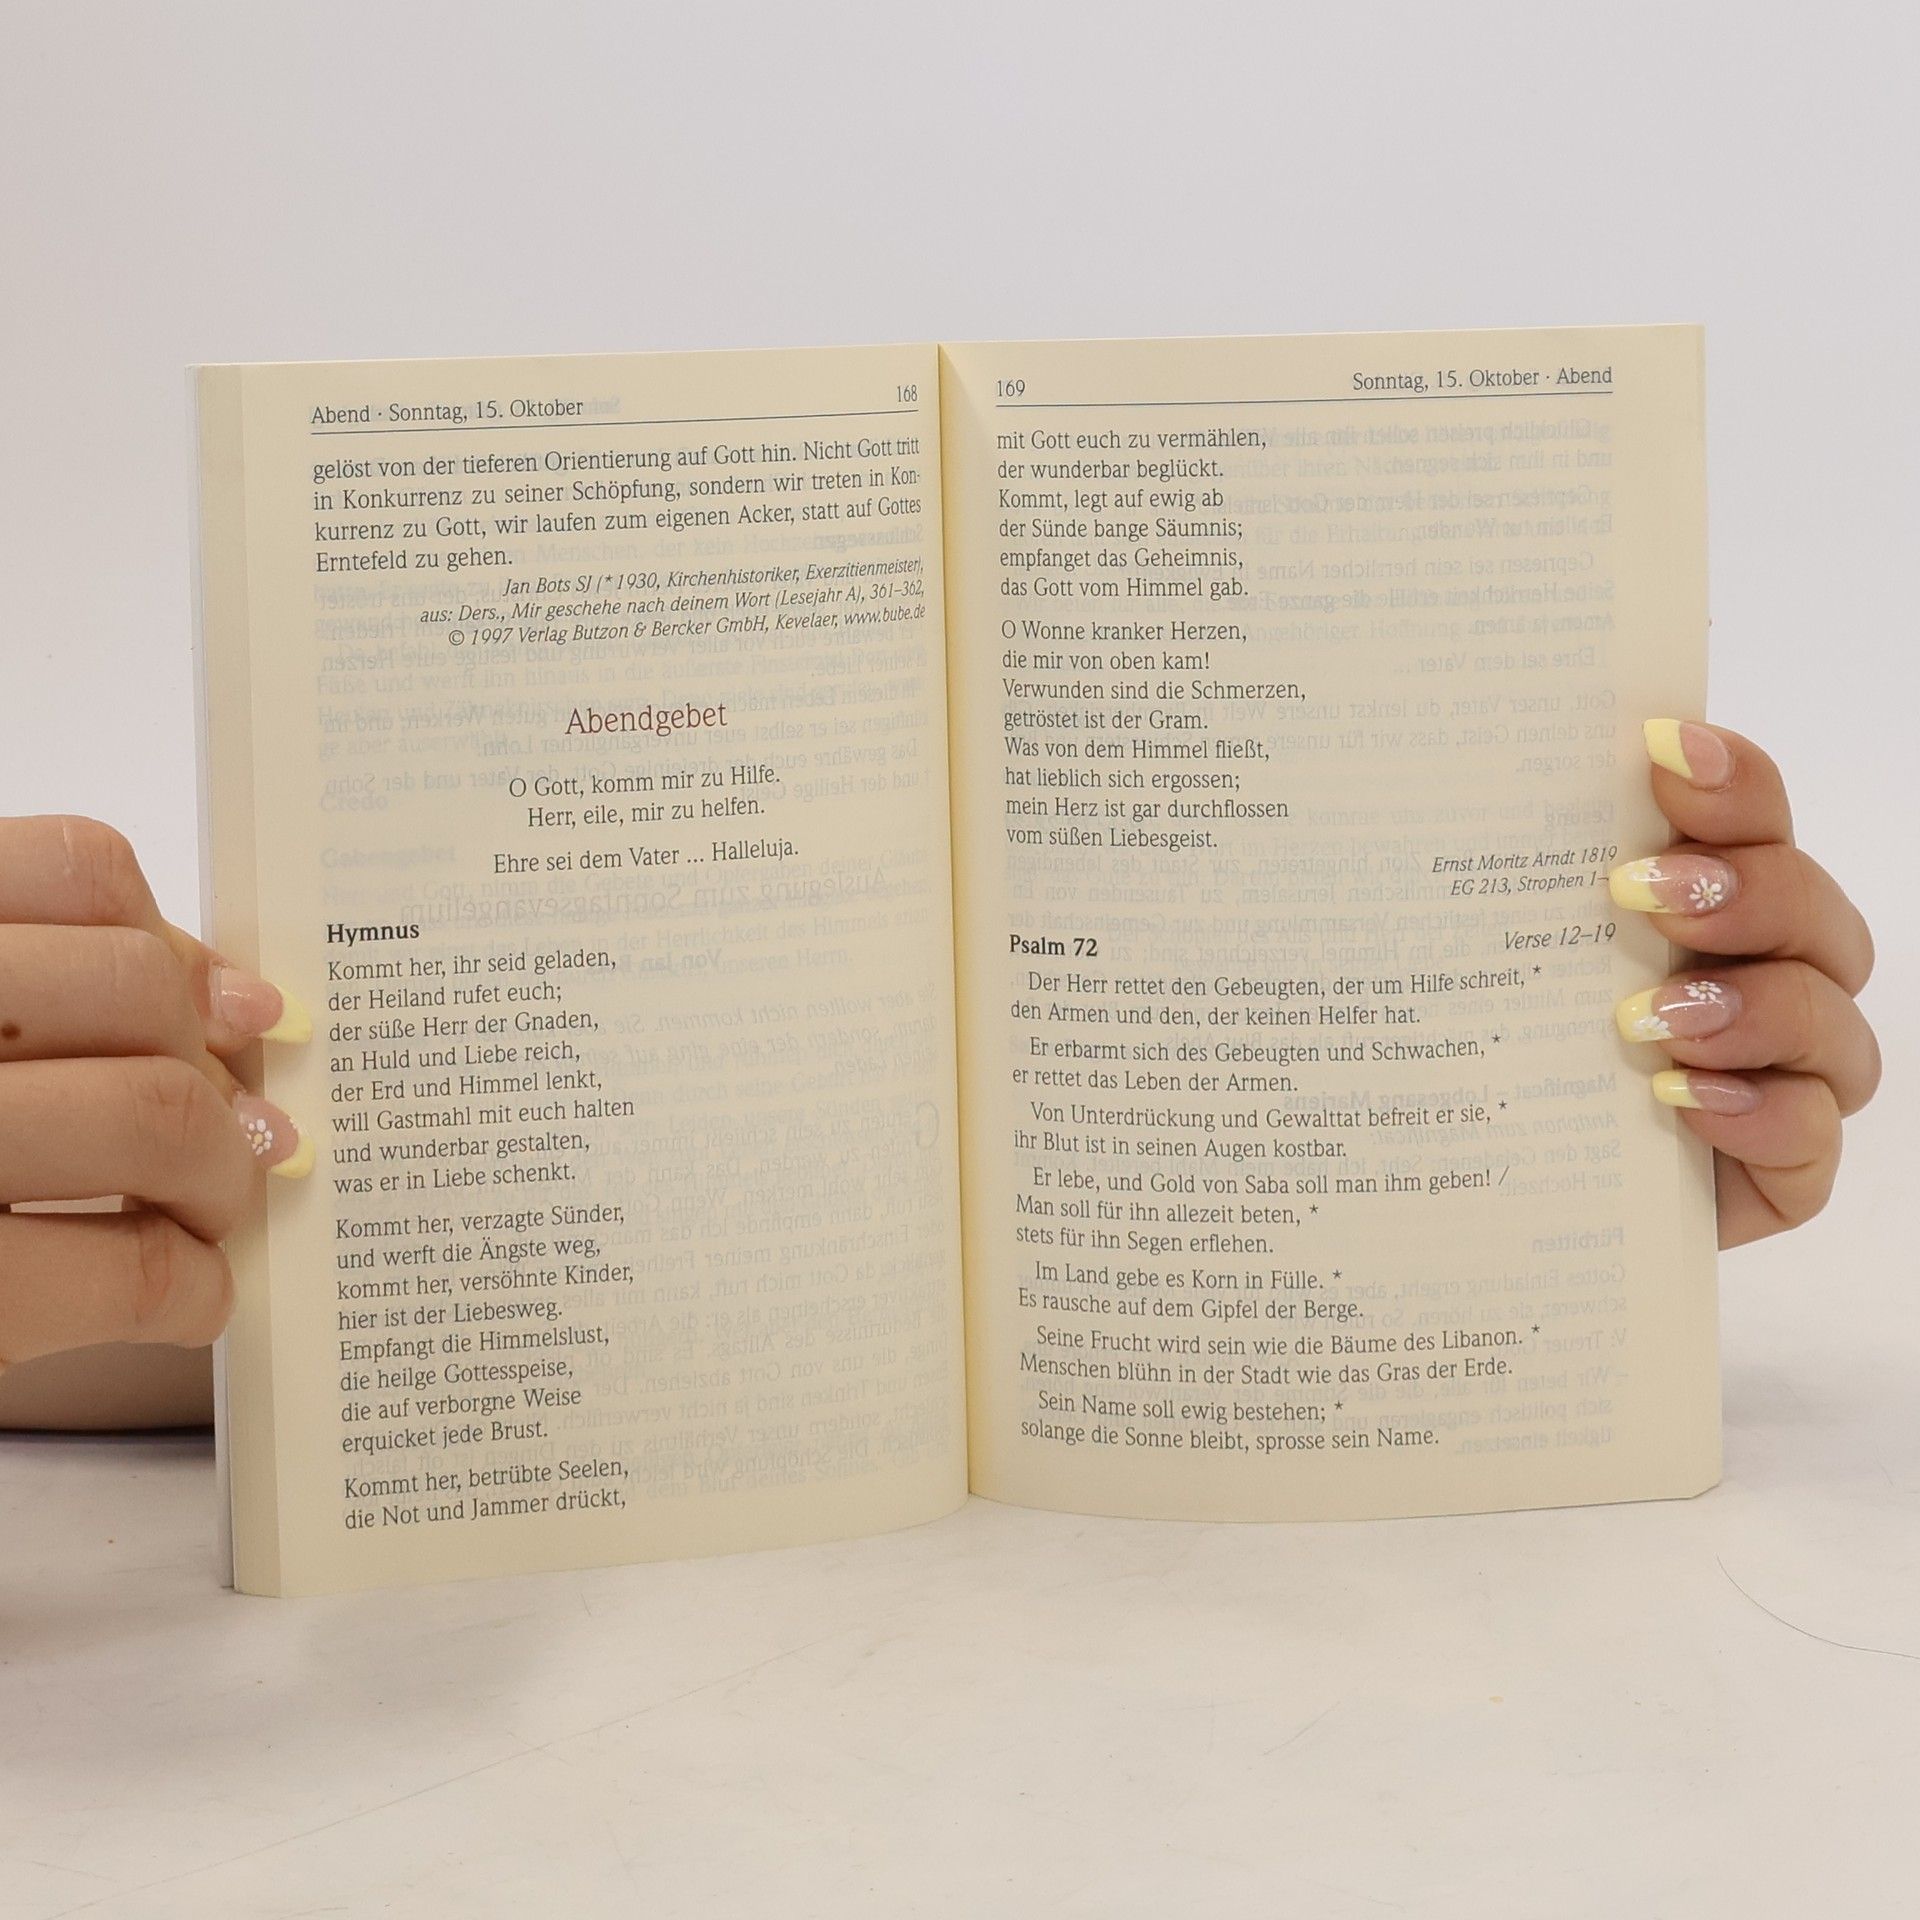 Abend · Sonntag, 15. Oktober 168
gelöst von der tieferen Orientierung auf Gott hin. Nicht Gott tritt
in Konkurrenz zu seiner Schöpfung, sondern wir treten in Kon-
kurrenz zu Gott, wir laufen zum eigenen Acker, statt auf Gottes
Erntefeld zu gehen.
Jan Bots SJ (* 1930, Kirchenhistoriker, Exerzitienmeister),
aus: Ders., Mir geschehe nach deinem Wort (Lesejahr A), 361–362,
© 1997 Verlag Butzon & Bercker GmbH, Kevelaer, www.bube.de
Abendgebet
O Gott, komm mir zu Hilfe.
Herr, eile, mir zu helfen.
Ehre sei dem Vater ... Halleluja.
Hymnus
Kommt her, ihr seid geladen,
der Heiland rufet euch;
der süße Herr der Gnaden,
an Huld und Liebe reich,
der Erd und Himmel lenkt,
will Gastmahl mit euch halten
und wunderbar gestalten,
was er in Liebe schenkt.
Kommt her, verzagte Sünder,
und werft die Ängste weg,
kommt her, versöhnte Kinder,
hier ist der Liebesweg.
Empfangt die Himmelslust,
die heilge Gottesspeise,
die auf verborgne Weise
erquicket jede Brust.
Kommt her, betrübte Seelen,
die Not und Jammer drückt,
169 Sonntag, 15. Oktober · Abend
mit Gott euch zu vermählen,
der wunderbar beglückt.
Kommt, legt auf ewig ab
der Sünde bange Säumnis;
empfanget das Geheimnis,
das Gott vom Himmel gab.
O Wonne kranker Herzen,
die mir von oben kam!
Verwunden sind die Schmerzen,
getröstet ist der Gram.
Was von dem Himmel fließt,
hat lieblich sich ergossen;
mein Herz ist gar durchflossen
vom süßen Liebesgeist.
Ernst Moritz Arndt 1819
EG 213, Strophen 1–
Psalm 72 Verse 12–19
Der Herr rettet den Gebeugten, der um Hilfe schreit, *
den Armen und den, der keinen Helfer hat.
Er erbarmt sich des Gebeugten und Schwachen, *
er rettet das Leben der Armen.
Von Unterdrückung und Gewalttat befreit er sie, *
ihr Blut ist in seinen Augen kostbar.
Er lebe, und Gold von Saba soll man ihm geben! /
Man soll für ihn allezeit beten, *
stets für ihn Segen erflehen.
Im Land gebe es Korn in Fülle. *
Es rausche auf dem Gipfel der Berge.
Seine Frucht wird sein wie die Bäume des Libanon. *
Menschen blühn in der Stadt wie das Gras der Erde.
Sein Name soll ewig bestehen; *
solange die Sonne bleibt, sprosse sein Name.